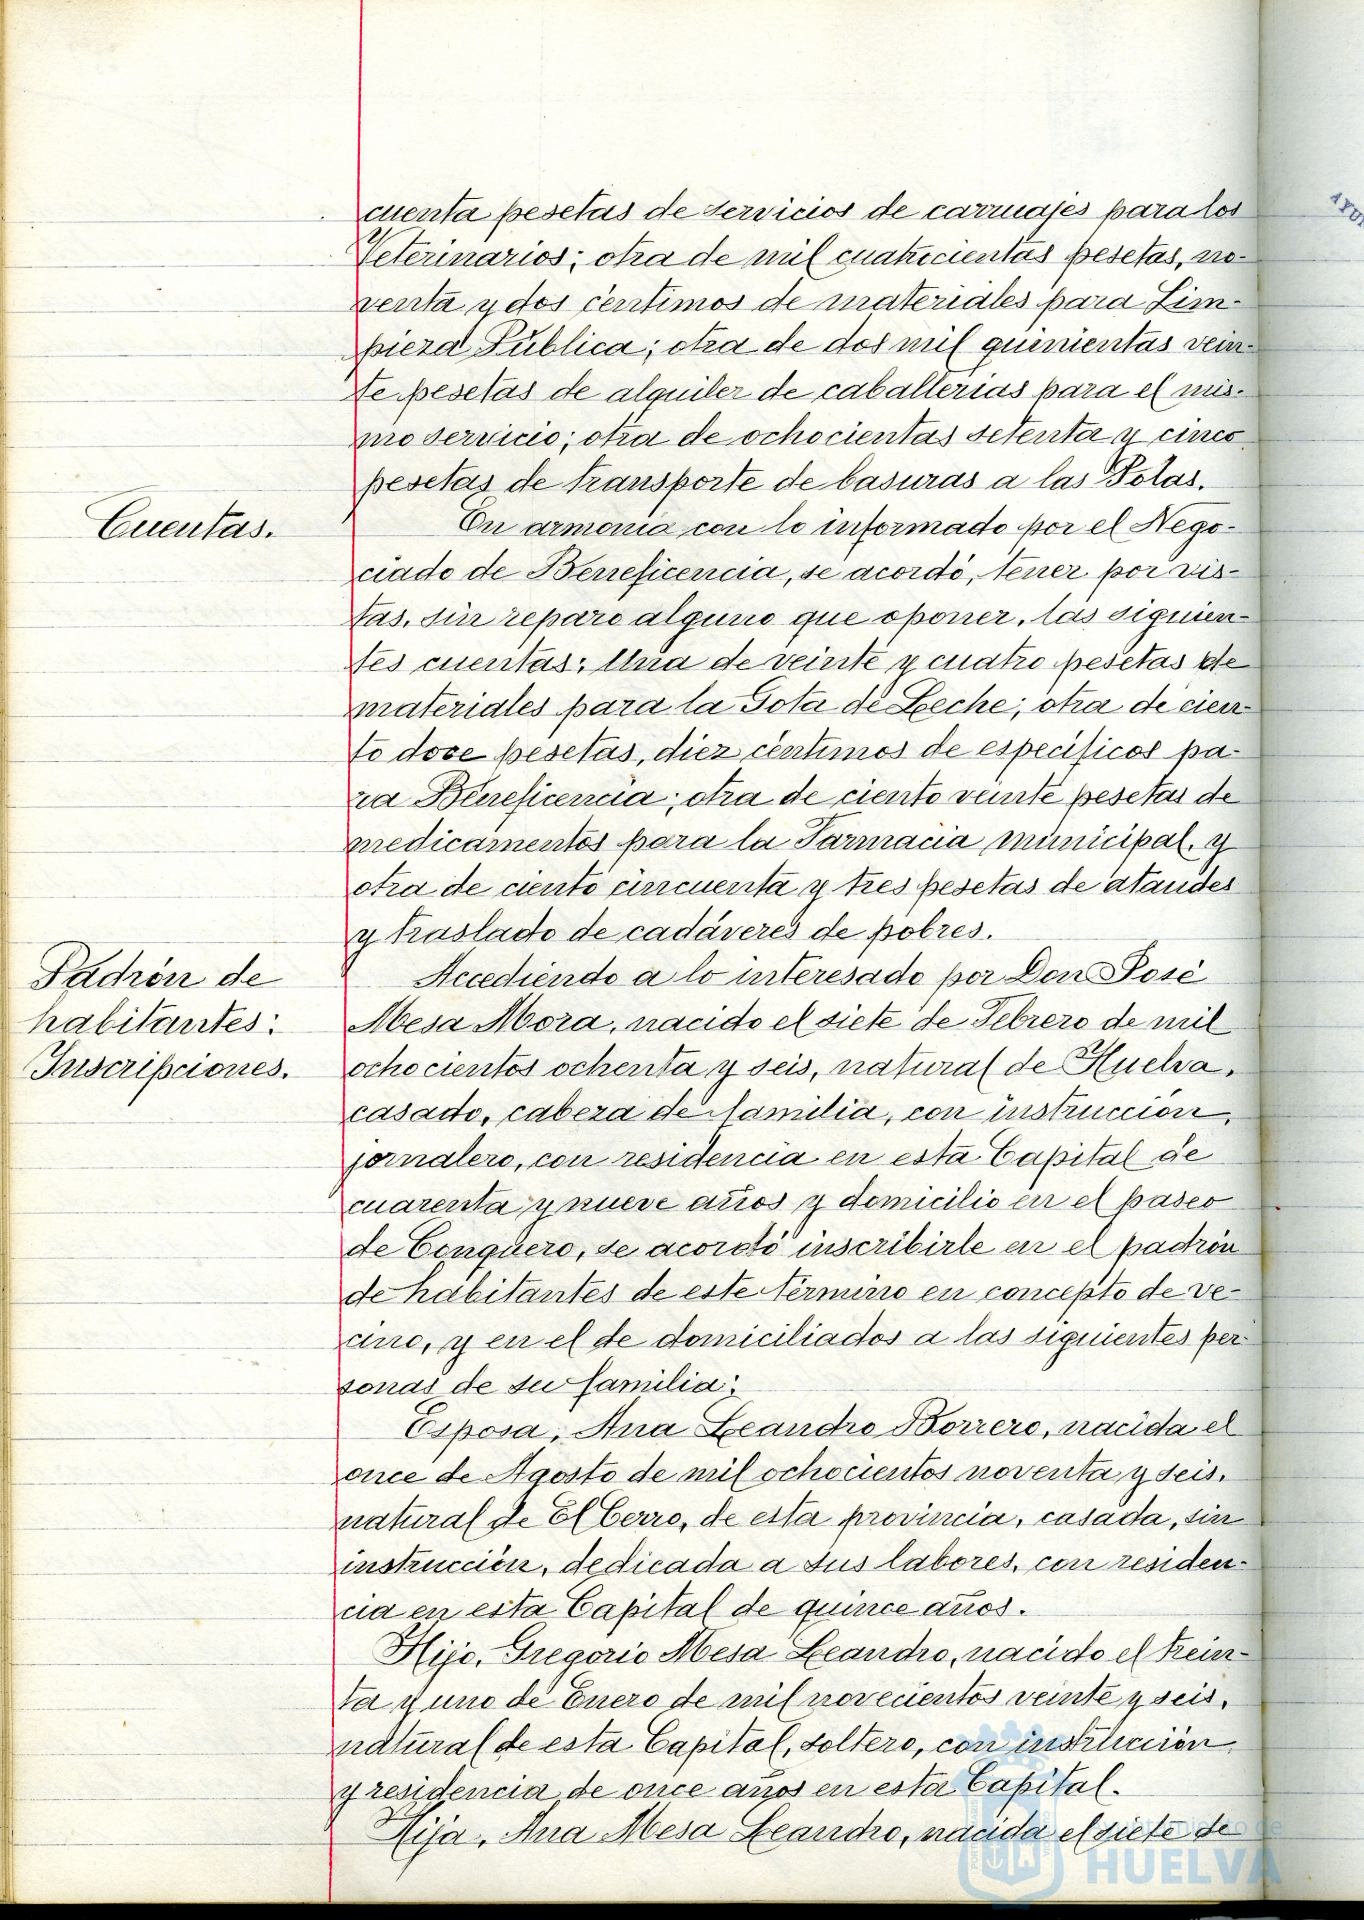 cuenta pesetas de servicios de carruajes para los
Veterinarios; otra de mil cuatrocientas pesetas, no-
venta y dos céntimos de materiales para Lim-
pieza Pública; otra de dos mil quinientas vein-
te pesetas de alquiler de caballerias para el mis-
mo servicio; otra de ochocientas setenta y cinco
pesetas de transporte de basuras a las Polas.
Cuentas.
En armonía con lo informado por el Nego-
ciado de Beneficencia, se acordó, tener por vis-
tas, sin reparo alguno que oponer, las siguien-
tes cuentas: Una de veinte y cuatro pesetas de
materiales para la Gota de Leche; otra de cien-
to doce pesetas, diez céntimos de específicos pa-
ra Beneficencia; otra de ciento veinte pesetas de
medicamentos para la Farmacia municipal, y
otra de ciento cincuenta y tres pesetas de ataudes
y traslado de cadáveres de pobres.
Padrón de
habitantes:
Inscripciones.
Accediendo a lo interesado por Don José
Mesa Mora, nacido el siete de Febrero de mil
ochocientos ochenta y seis, natural de Huelva,
casado, cabeza de familia, con instrucción,
jornalero, con residencia en esta Capital de
cuarenta y nueve años y domicilio en el paseo
de Conquero, se acordó inscribirle en el padrón
de habitantes de este término en concepto de ve-
cino, y en el de domiciliados a las siguientes per-
sonas de su familia:
Esposa, Ana Leandro Borrero, nacida el
once de Agosto de mil ochocientos noventa y seis,
natural de El Cerro, de esta provincia, casada, sin
instrucción, dedicada a sus labores, con residen-
cia en esta Capital de quince años.
Hijo, Gregorio Mesa Leandro, nacido el trein-
ta y uno de Enero de mil novecientos veinte y seis,
natural de esta Capital, soltero, con instrucción
y residencia de once años en esta Capital.
Hija, Ana Mesa Leandro, nacida el siete de
HUELVA